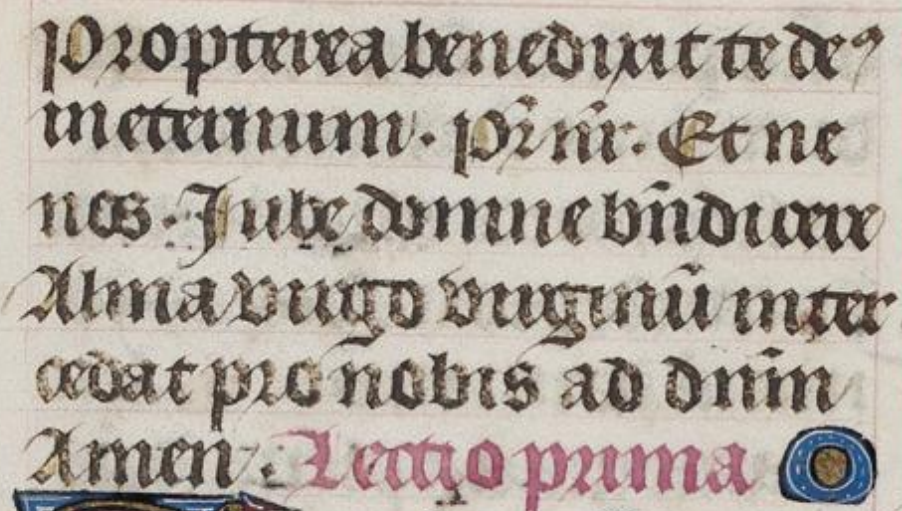 Propterea benedixit te deꝰ
in eternum. Pr̄ nr̄. Et ne
nos. Jube domine bn̄dicere
Alma virgo virginū inter
cedat pro nobis ad dnm̄
Amen. Lectio prima